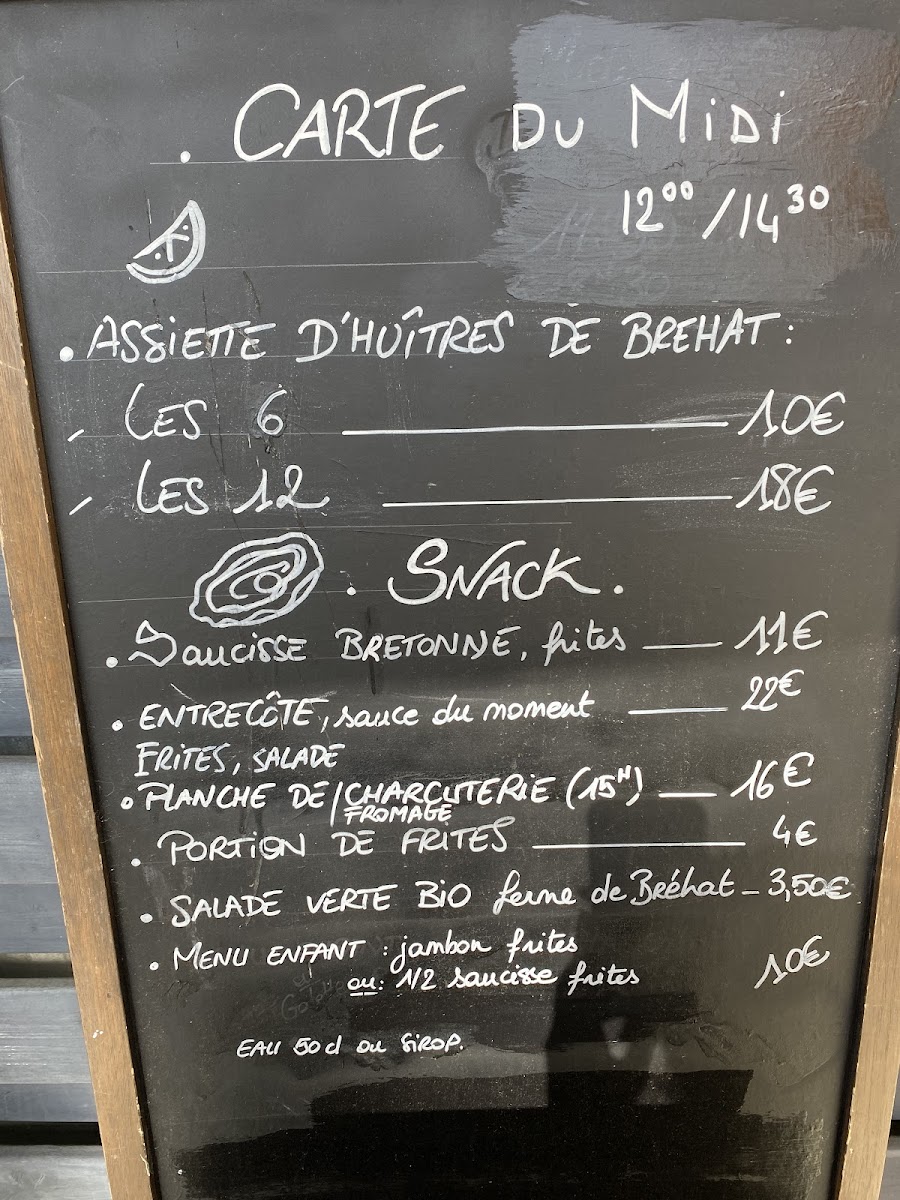 . CARTE DU MiDi
12⁰⁰/14³⁰
. ASSIETTE D'HUÎTRES DE BREHAT :
- LES 6 10€
- LES 12 18€
. SNACK .
. SAUCISSE BRETONNE, frites 11€
. ENTRECÔTE, sauce du moment 22€
FRITES, SALADE
. PLANCHE DE / CHARCUTERIE (15ᴴ) 16€
FROMAGE
. PORTION DE FRITES 4€
. SALADE VERTE BiO ferme de Bréhat - 3,50€
. MENU ENFANT : jambon frites
ou : 1/2 saucisse frites 10€
EAU 50cl ou SIROP.